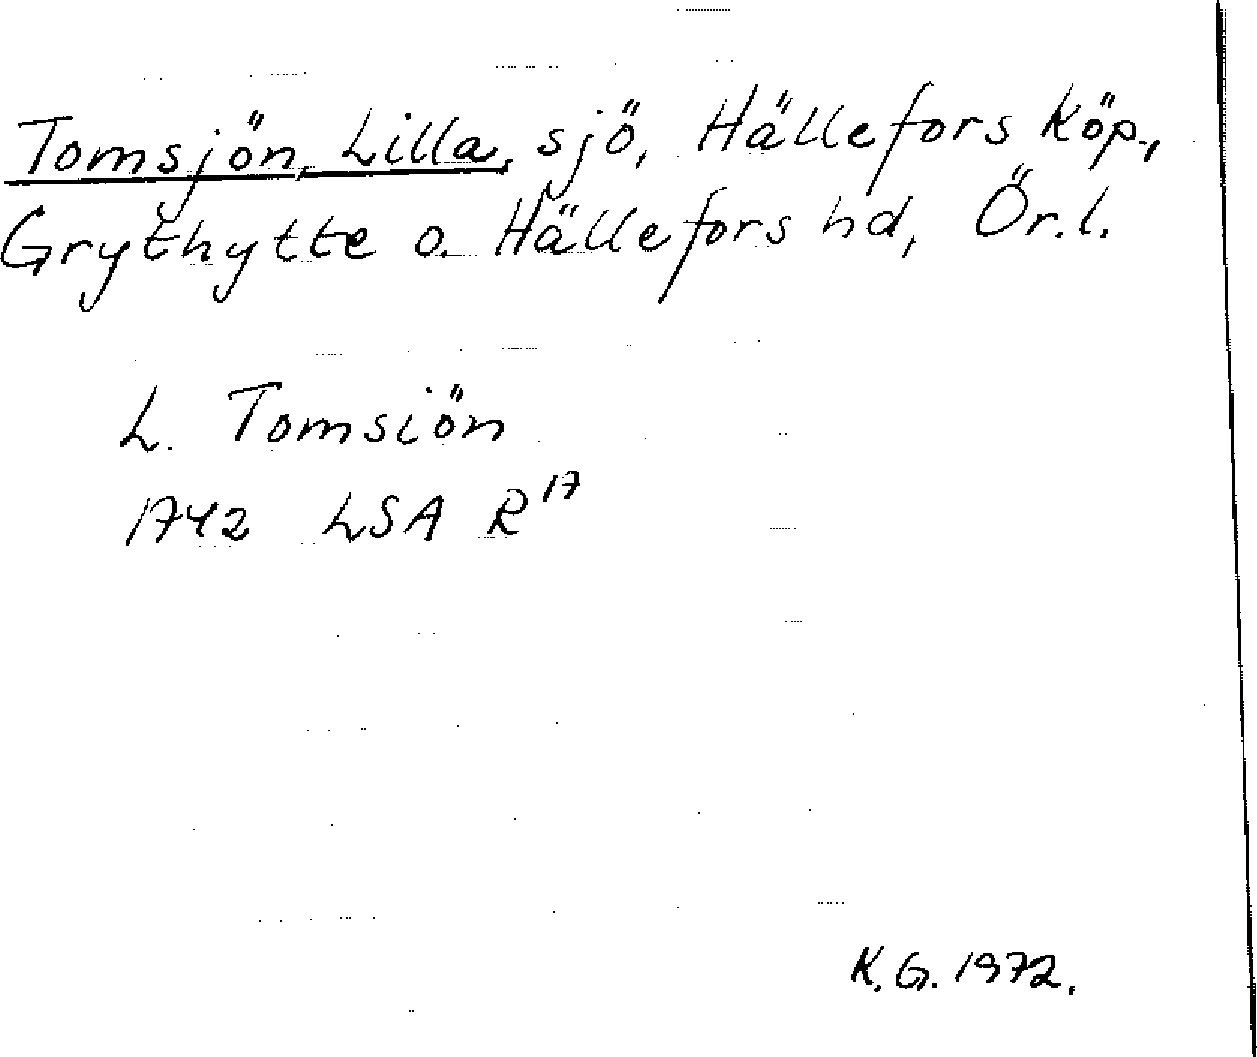 Tomsjön, Lilla, sjö, Hällefors köp.,
Grythytte o. Hällefors hd, Ör. l.
L. Tomsiön
1742 LSA R 17
K. G. 1972.